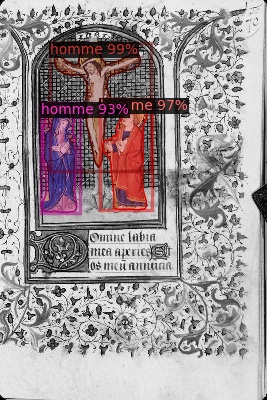 homme 99%
homme 93%
me 97%
Domine labia
mea aperies Et
os meū annūcia